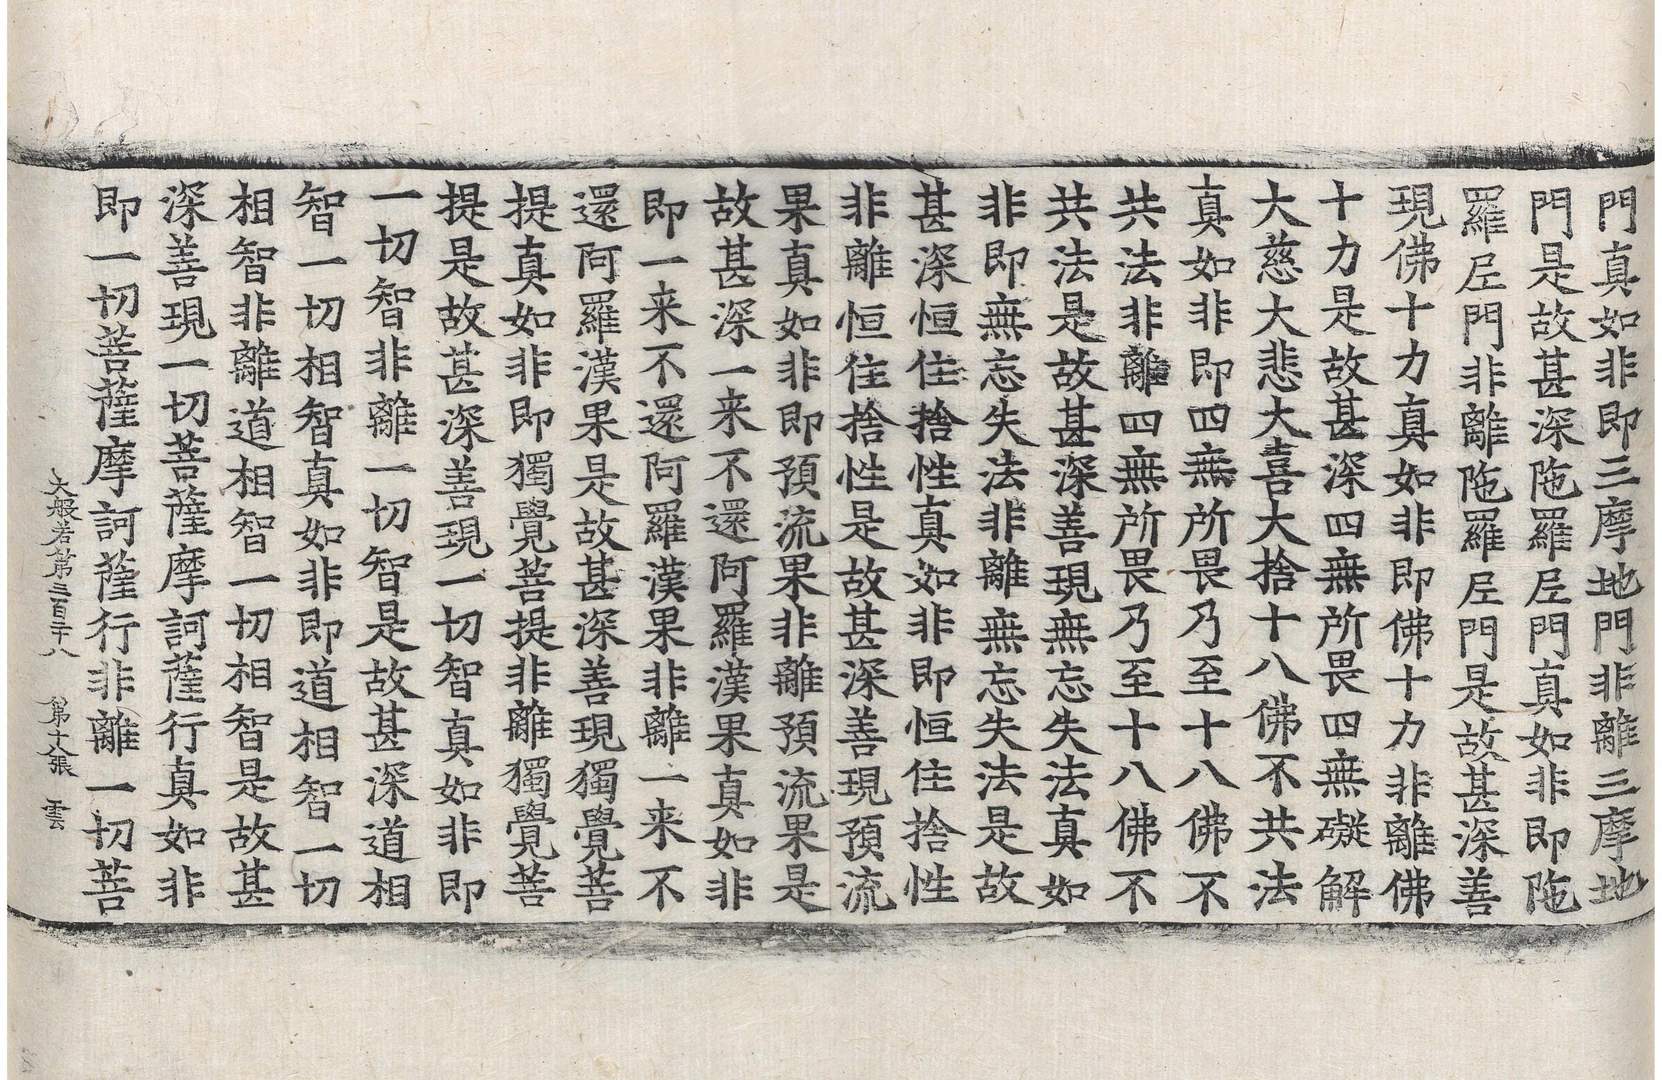 門真如非即三摩地門非離三摩地
門是故甚深陁羅𡰱門真如非即陁
羅𡰱門非離陁羅𡰱門是故甚深善
現佛十力真如非即佛十力非離佛
十力是故甚深四無所畏四無礙解
大慈大悲大喜大捨十八佛不共法
真如非即四無所畏乃至十八佛不
共法非離四無所畏乃至十八佛不
共法是故甚深善現無忘失法真如
非即無忘失法非離無忘失法是故
甚深恒住捨性真如非即恒住捨性
非離恒住捨性是故甚深善現預流
果真如非即預流果非離預流果是
故甚深一来不還阿羅漢果真如非
即一来不還阿羅漢果非離一来不
還阿羅漢果是故甚深善現獨覺菩
提真如非即獨覺菩提非離獨覺菩
提是故甚深善現一切智真如非即
一切智非離一切智是故甚深道相
智一切相智真如非即道相智一切
相智非離道相智一切相智是故甚
深善現一切菩薩摩訶薩行真如非
即一切菩薩摩訶薩行非離一切菩
大般若第三百二十八 第十八張 雲